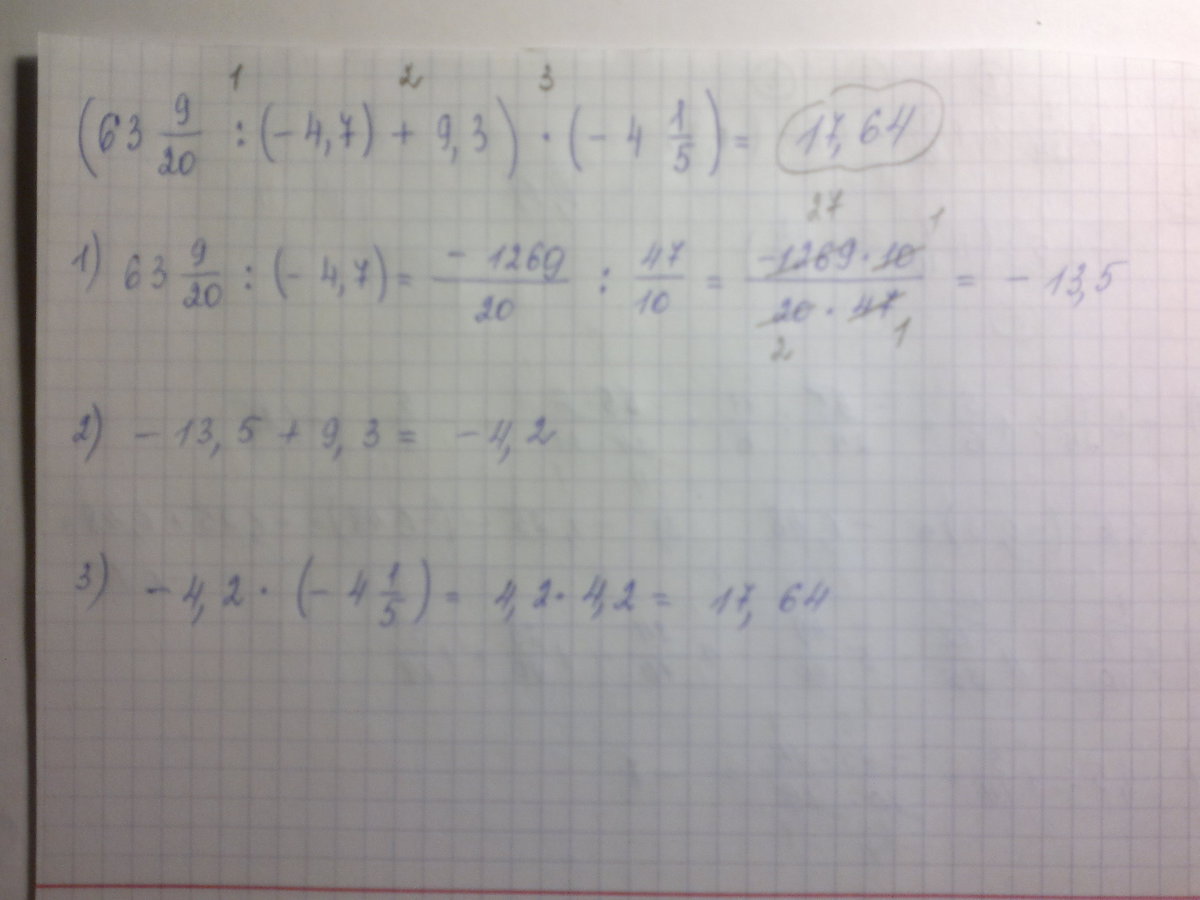 1 2 3
(63 9/20 : (- 4,7) + 9,3) · (- 4 1/5) = 17,64
1) 63 9/20 : (- 4,7) = - 1269/20 : 47/10 = -1269 · 10/20 · 47 = - 13,5
27 1 2 1
2) - 13,5 + 9,3 = - 4,2
3) - 4,2 · (- 4 1/5) = 4,2 · 4,2 = 17,64